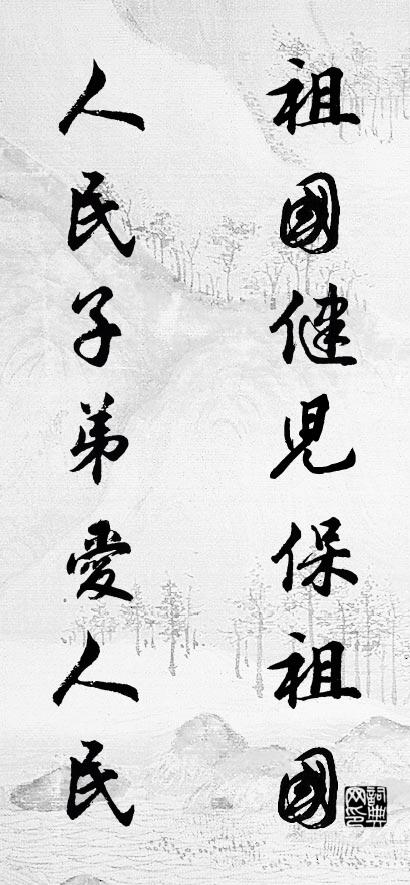 祖國健兒保祖國
人民子弟愛人民
詞典网印